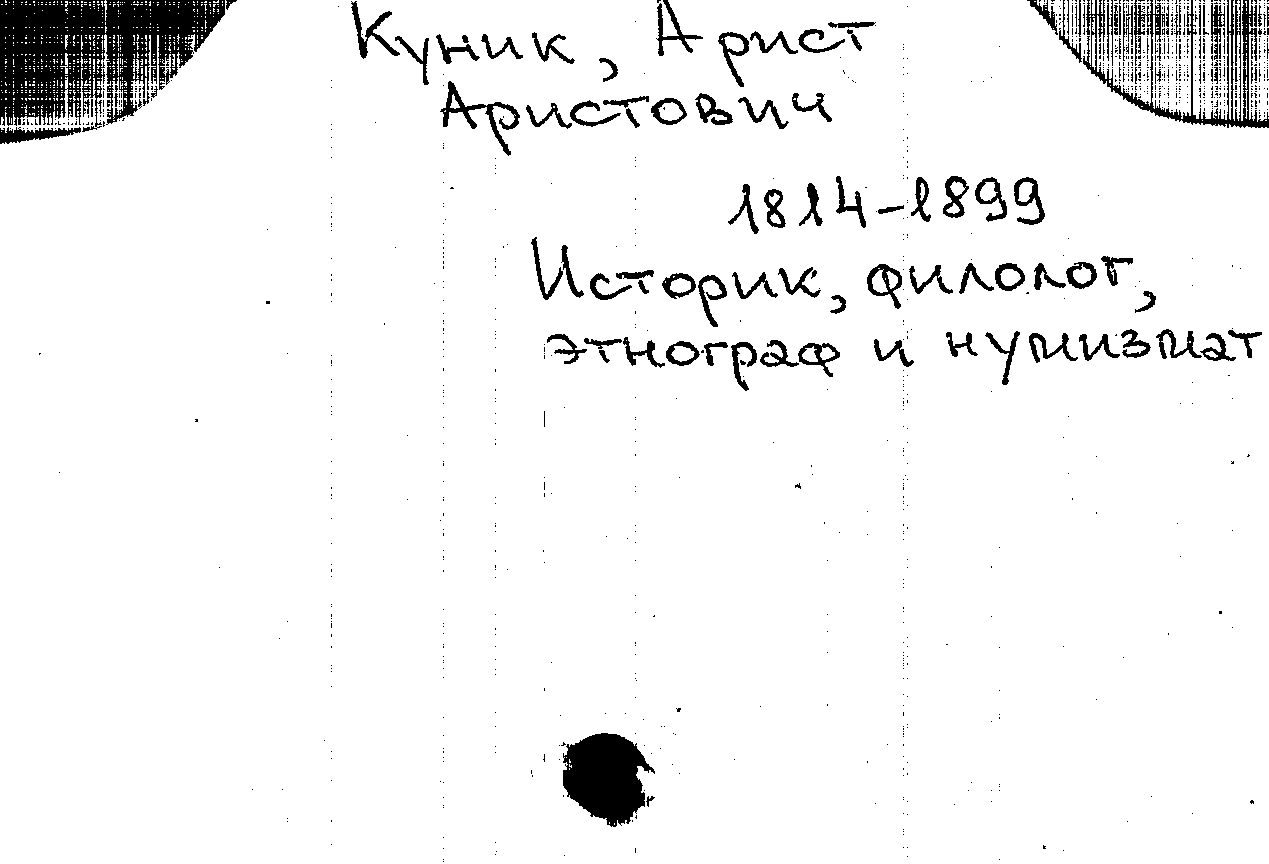 Куник, Арист
Аристович
1814-1899
Историк, филолог,
этнограф и нумизмат